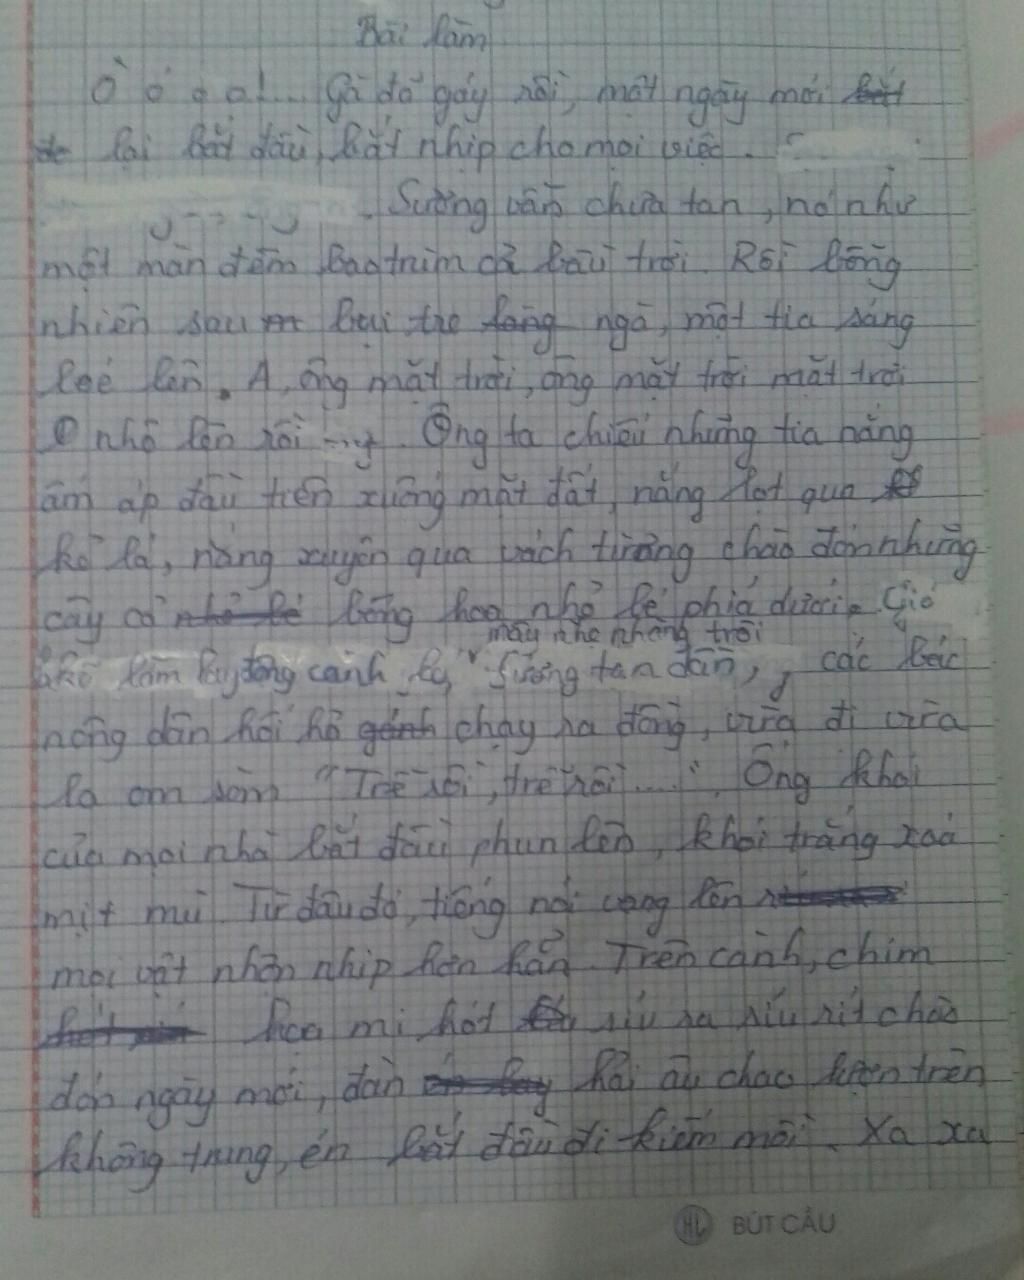 Bài làm
Ò ó o o!... Gà đã gáy rồi, một ngày mới
lại bắt đầu, bắt nhịp cho mọi việc.
Sương vẫn chưa tan, nó như
một màn đêm bao trùm cả bầu trời. Rồi bỗng
nhiên sau bụi tre ngà, một tia sáng
loé lên. A, ông mặt trời, ông mặt trời mặt trời
nhô lên rồi. Ông ta chiếu những tia nắng
ấm áp đầu tiên xuống mặt đất, nắng lọt qua
kẽ lá, nắng xuyên qua vách tường chào đón những
cây cỏ bông hoa nhỏ bé phía dưới. Gió
mây nhẹ nhàng trôi
khẽ làm lay động cành cây. Sương tan dần, các bác
nông dân hối hả chạy ra đồng, vừa đi vừa
la om sòm "Trễ rồi, trễ rồi....". Ống khói
của mọi nhà bắt đầu phun lên, khói trắng xoá
mịt mù. Từ đâu đó, tiếng nói vang lên
mọi vật nhộn nhịp hơn hẳn. Trên cành, chim
hoạ mi hót ríu ra ríu rít chào
đón ngày mới, đàn hải âu chao lượn trên
không trung, én bắt đầu đi kiếm mồi. Xa xa
HL BÚT CẦU